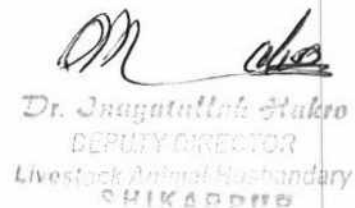 Dr. Inayatullah Hakro
DEPUTY DIRECTOR
Livestock Animal Husbandary
SHIKARPUR